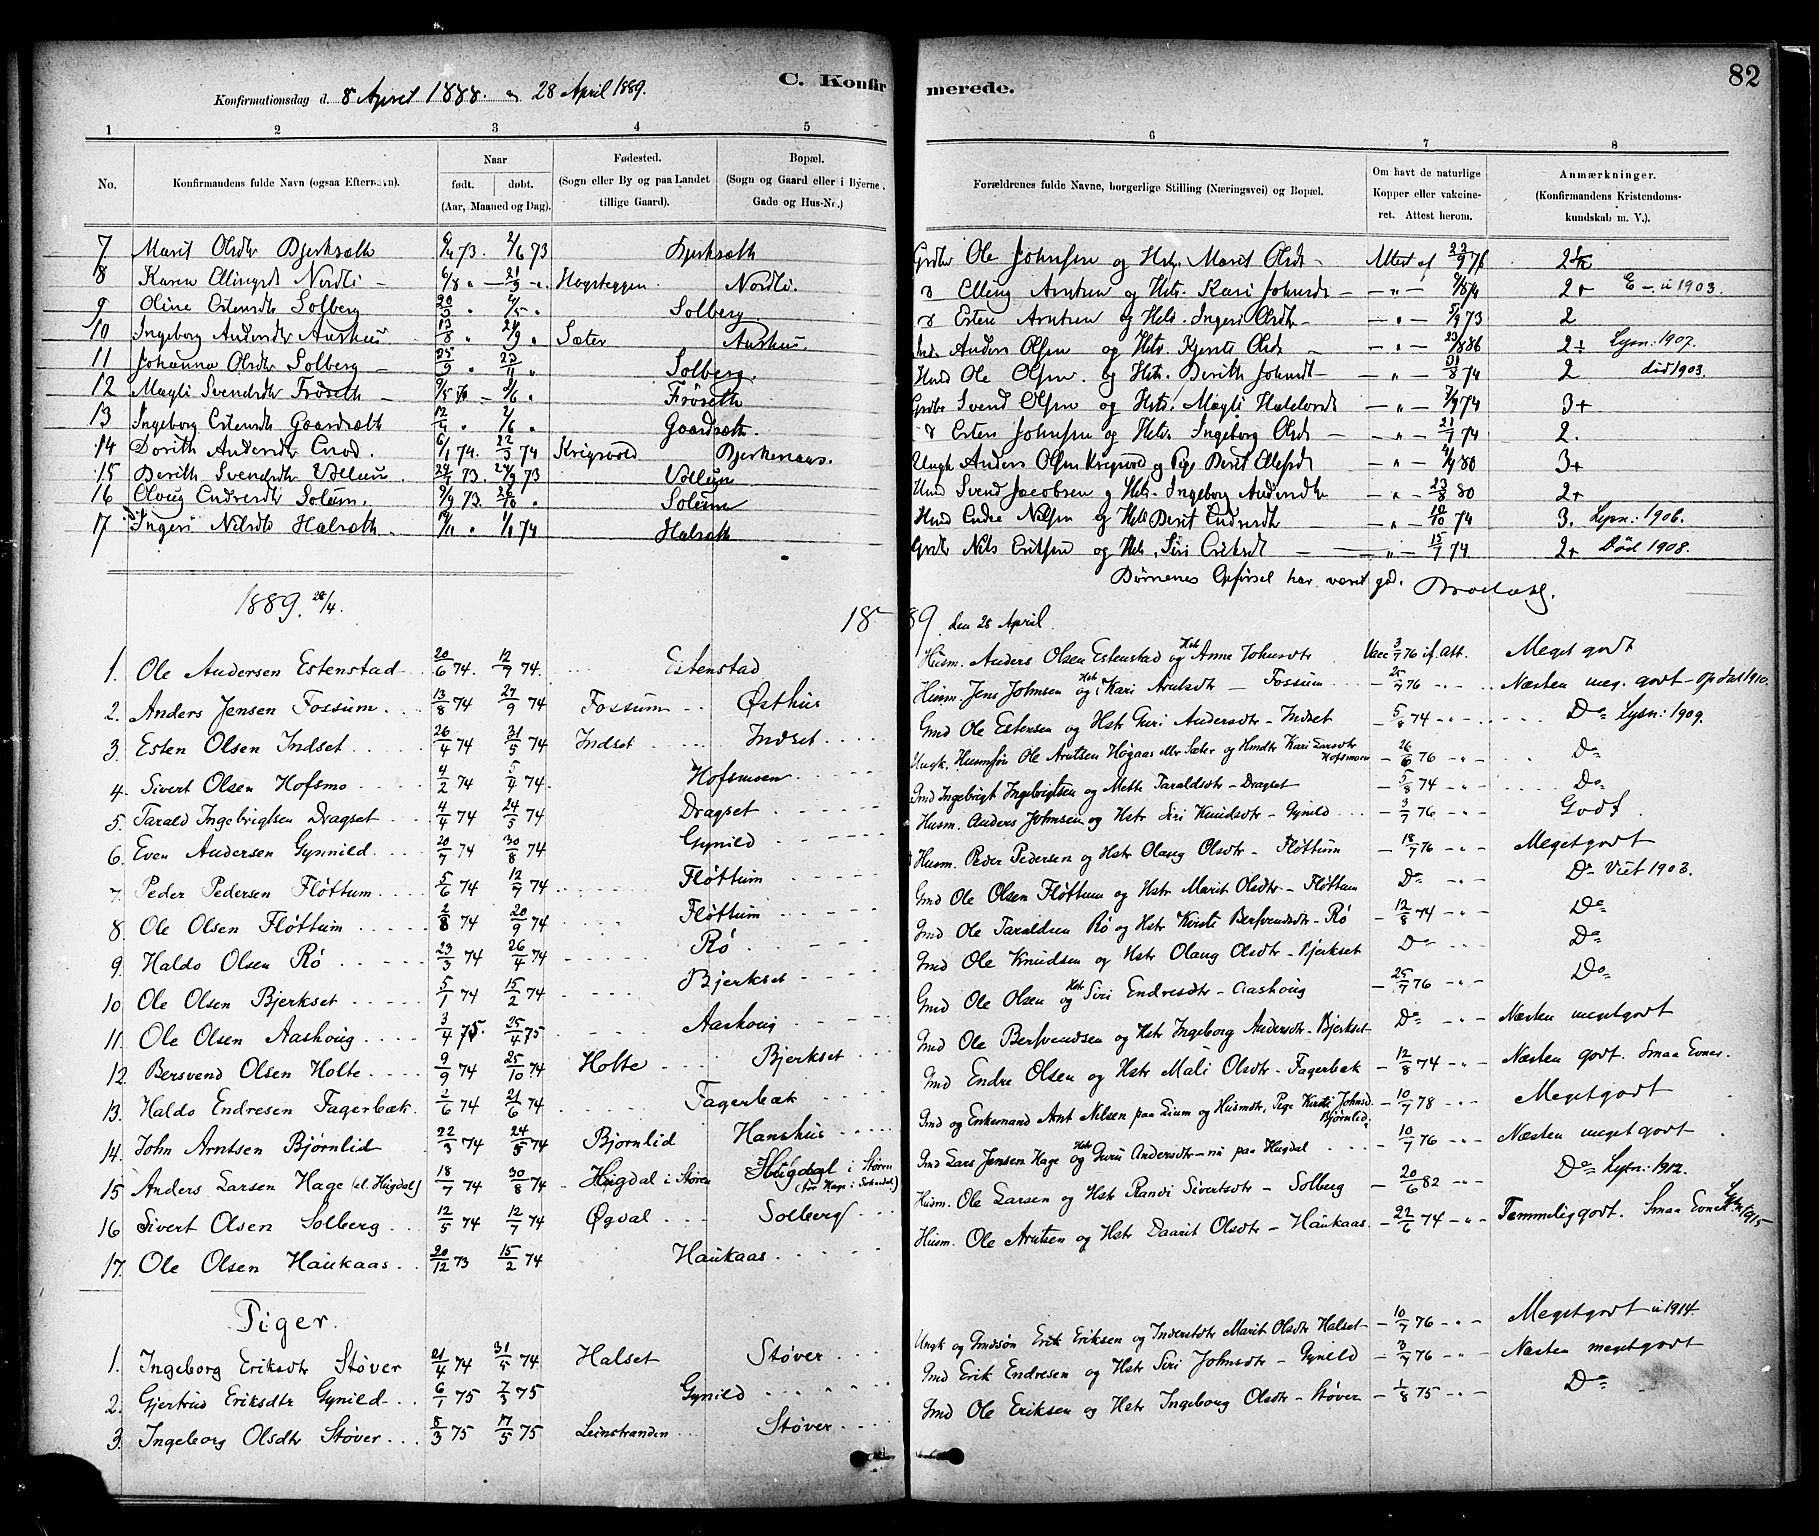 C. Konfir merede. 82
Konfirmationsdag d. 8 April 1888. og 28 April 1889.
1 2 3 4 5 6 7 8
No. Konfirmandens fulde Navn (ogsaa Efternavn). Naar født. døbt. (Aar, Maaned og Dag). Fødested. (Sogn eller By og paa Landet tillige Gaard). Bopæl. (Sogn og Gaard eller i Byerne, Gade og Hus-No.) Forældrenes fulde Navne, borgerlige Stilling (Næringsvei) og Bopæl. Om havt de naturlige Kopper eller vakcineret. Attest herom. Anmærkninger. (Konfirmandens Kristendomskundskab m. V.).
7 Marit Olsdtr Bjerksæth 2/6 73 Bjerksæth Ole Johnsen og Hstr. Marit Olsdr - Attest af
8 Karen Ellingsd Nordli - 6/8 " - 21/9 ". Nordli. Elling Arntsen og Hstr. Kari Johnsdr - " - 2+ 1903.
9 Oline Estensdtr Solberg Solberg. Esten Arntsen og Hstr. Ingeri Olsdtr - " - 73 2
10 Ingeborg Andersdtr Aashuus 13/8 " Sæter Aashuus. Anders Olsen og Hstr. Kjersti Olsdr - " - 23/8 86 2+ Lysn: 1907.
11 Johanna Olsdtr Solberg - Solberg. Ole Olsen og Hstr. Berith Johnsdt - " - 74 2 død 1903.
12 Magli Svendsdtr Frøseth - 2/6 " Frøseth Svend Olsen og Hstr. Magli Haldorsdr - " - 74 3+
13 Ingeborg Estensdtr Gaardsæth Gaardsæth. Esten Johnsen og Hstr. Ingeborg Olsdr - " - 21/7 74 2.
14 Dorith Andersdtr 6/1 74. 22/3 74 Krigsvold Bjerkenaas. Ungk Anders Olsen Krigsvold og Pige Berit - " - 80 3+
15 Berith Svendsdtr Vollum. 73. 73 Vollum Svend Jacobsen og Hstr. Ingeborg Andersdtr - " - 23/8 80 2+
16 Oloug Endresdtr Solum. 73. 26/10 " Solum Endre Nilsen og Hstr Berit Endresdtr - " - 10/10 74 3. Lysn: 1906.
17 Ingeri Nilsdtr Halsæth. 1/1 74 Halsæth Nils Eriksen og Hstr. Siri Eriksdt - " - 15/7 74 2+ Død 1908.
Børnenes Opførsel har været god.
1889. 28/4. 1889 den 28 April
1. Ole Andersen Estenstad 20/6 74 12/7 74. Estenstad Husm. Anders Olsen Estenstad og Hstr Anne Johnsdtr Vacc 3/7 76 if. Att. Meget godt
2. Anders Jensen Fossum 13/8 74 27/9 74 Fossum Østhus Husm. Jens Johnsen og Hstr Kari Arntsdtr - Fossum - 25/7 76 - "- Næsten meg. godt - Opdal 1910.
3. Esten Olsen Indset 26/4 74 31/5 74 Indset Indset Gmd Ole Estensen og Hstr Guri Andersdtr - Indset - 5/8 74 - "- Do Lysn: 1909.
4. Sivert Olsen Hofsmo 4/2 74 74. Hofsmoen Ungk. Husmsøn Ole Arntsen Høgaas eller Sæter og Hmdtr Kari Larsdtr Hofsmoen - 26/6 76 "- Do
5. Tarald Ingebrigtsen Dragset 4/4 74 24/5 74 Dragset Gmd Ingebrigt Ingebrigtsen og Mette Taraldsdtr - Dragset - 5/8 74 - "- Do
6. Even Andersen Gynnild 20/7 74 30/8 74 Gynild Husm. Anders Johnsen og Hstr Siri Knudsdtr - Gynild - 3/7 76 - "- Godt
7. Peder Pedersen Fløttum 5/6 74 12/7 74 Fløttum Husm. Peder Pedersen og Hstr Olaug Olsdtr - Fløttum - 18/7 76 - "- Megetgodt
8. Ole Olsen Fløttum 2/8 74 20/9 74 Fløttum Gmd Ole Olsen Fløttum og Hstr Marit Olsdtr - Fløttum Do - "- Do Viet 1903.
9. Haldo Olsen Rø 23/3 74 26/4 74 Rø Gmd Ole Taraldsen Rø og Hstr Kirsti Bersvendsdtr - Rø - 12/8 74 - "- Do
10 Ole Olsen Bjerkset 5/1 74 15/2 74 Bjerkset Gmd Ole Knudsen og Hstr Olaug Olsdtr - Bjerkset Do Do
11. Ole Olsen Aashoug 3/4 75. 25/4 75 Aashoug Gmd Ole Olsen og Hstr Siri Endresdtr - Aashoug - 25/7 76 - "- Do
12. Bersvend Olsen Holte 9/9 74 25/10 74 Holte Bjerkset Gmd Ole Bersvendsen og Hstr Ingeborg Andersdtr - Bjerkset Do - "- Næsten megetgodt
13. Haldo Endresen Fagerbæk 2/6 74 21/6 74 Fagerbæk Gmd Endre Olsen og Hstr Mali Olsdtr - Fagerbæk - 12/8 74 - "- Næsten godt. Smaa Evner.
14. John Arntsen Bjørnlid 22/3 74 24/5 74 Bjørnlid Hanshus Gmd og Enkemand Arnt Nilsen paa Lium og Husmdtr, Pige Kirsti Johnsd. Bjørnlid - 10/7 78 - "- Megetgodt
15 Anders Larsen Hage (el. Hugdal) 18/7 74 30/8 74 Hugdal i Støren Hugdal i Støren (før Hage i Soknedal) Gmd Lars Jensen Hage og Hstr Guru Andersdtr - nu paa Hugdal - 10/7 76 - "- Næsten megetgodt
16 Sivert Olsen Solberg 12/5 74 12/7 74 Øgdal Solberg Husm. Ole Larsen og Hstr Randi Sivertsdtr - Solberg - 20/6 82 - "- Do Lysn: 1912.
17. Ole Olsen Haukaas 20/12 73 15/2 74 Haukaas Husm. Ole Arntsen og Hstr Daarit Olsdtr - Haukaas - 22/6 74 - "- Temmelig godt. Smaa Evner. Lysn 1915
Piger.
1. Ingeborg Eriksdtr Støver 21/4 74 31/5 74 Halset Støver Ungk og Gmdsøn Erik Eriksen og Inderstdtr Marit Olsdtr Halset - 10/7 76 - "- Megetgodt u 1914
2. Gjertrud Eriksdtr Gynild 6/1 75 7/3 75 Gynild Gmd Erik Endresen og Hstr Siri Johnsdtr - Gynild - 3/7 76 - "- Næsten megetgodt
3. Ingeborg Olsdtr Støver 8/3 75 17/5 75 Leinstranden Støver Gmd Ole Eriksen og Hstr Ingeborg Olsdtr - Støver - 1/8 75 - "- Do